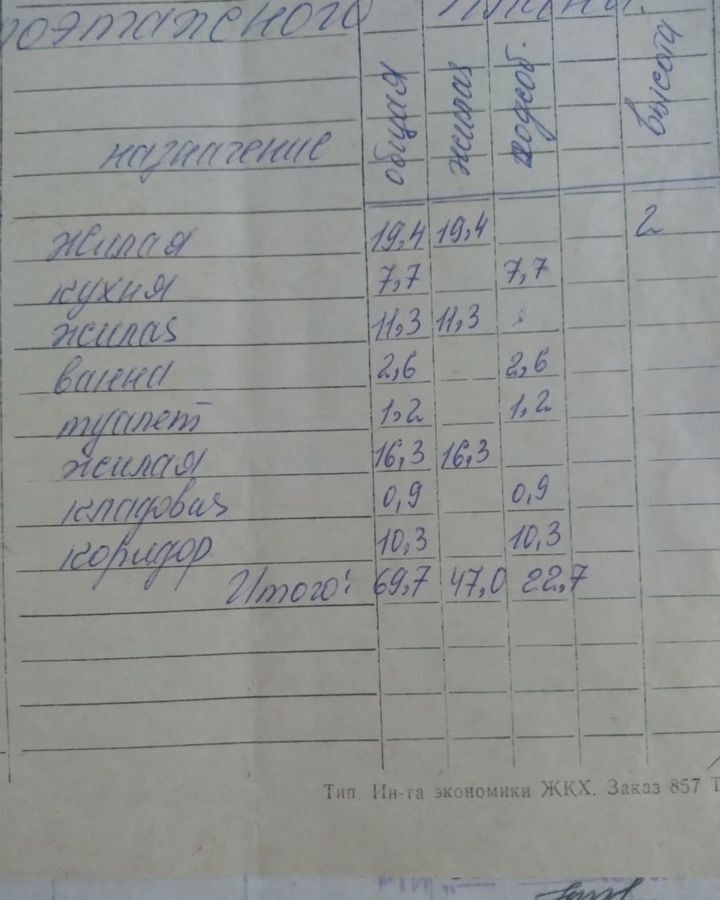 поэтажного плана.
назначение общая жилая подсоб. высота
жилая 19,4 19,4 2
кухня 7,7 7,7
жилая 11,3 11,3
ванна 2,6 2,6
туалет 1,2 1,2
жилая 16,3 16,3
кладовая 0,9 0,9
коридор 10,3 10,3
Итого: 69,7 47,0 22,7
Тип. Ин-та экономики ЖКХ. Заказ 857 Т